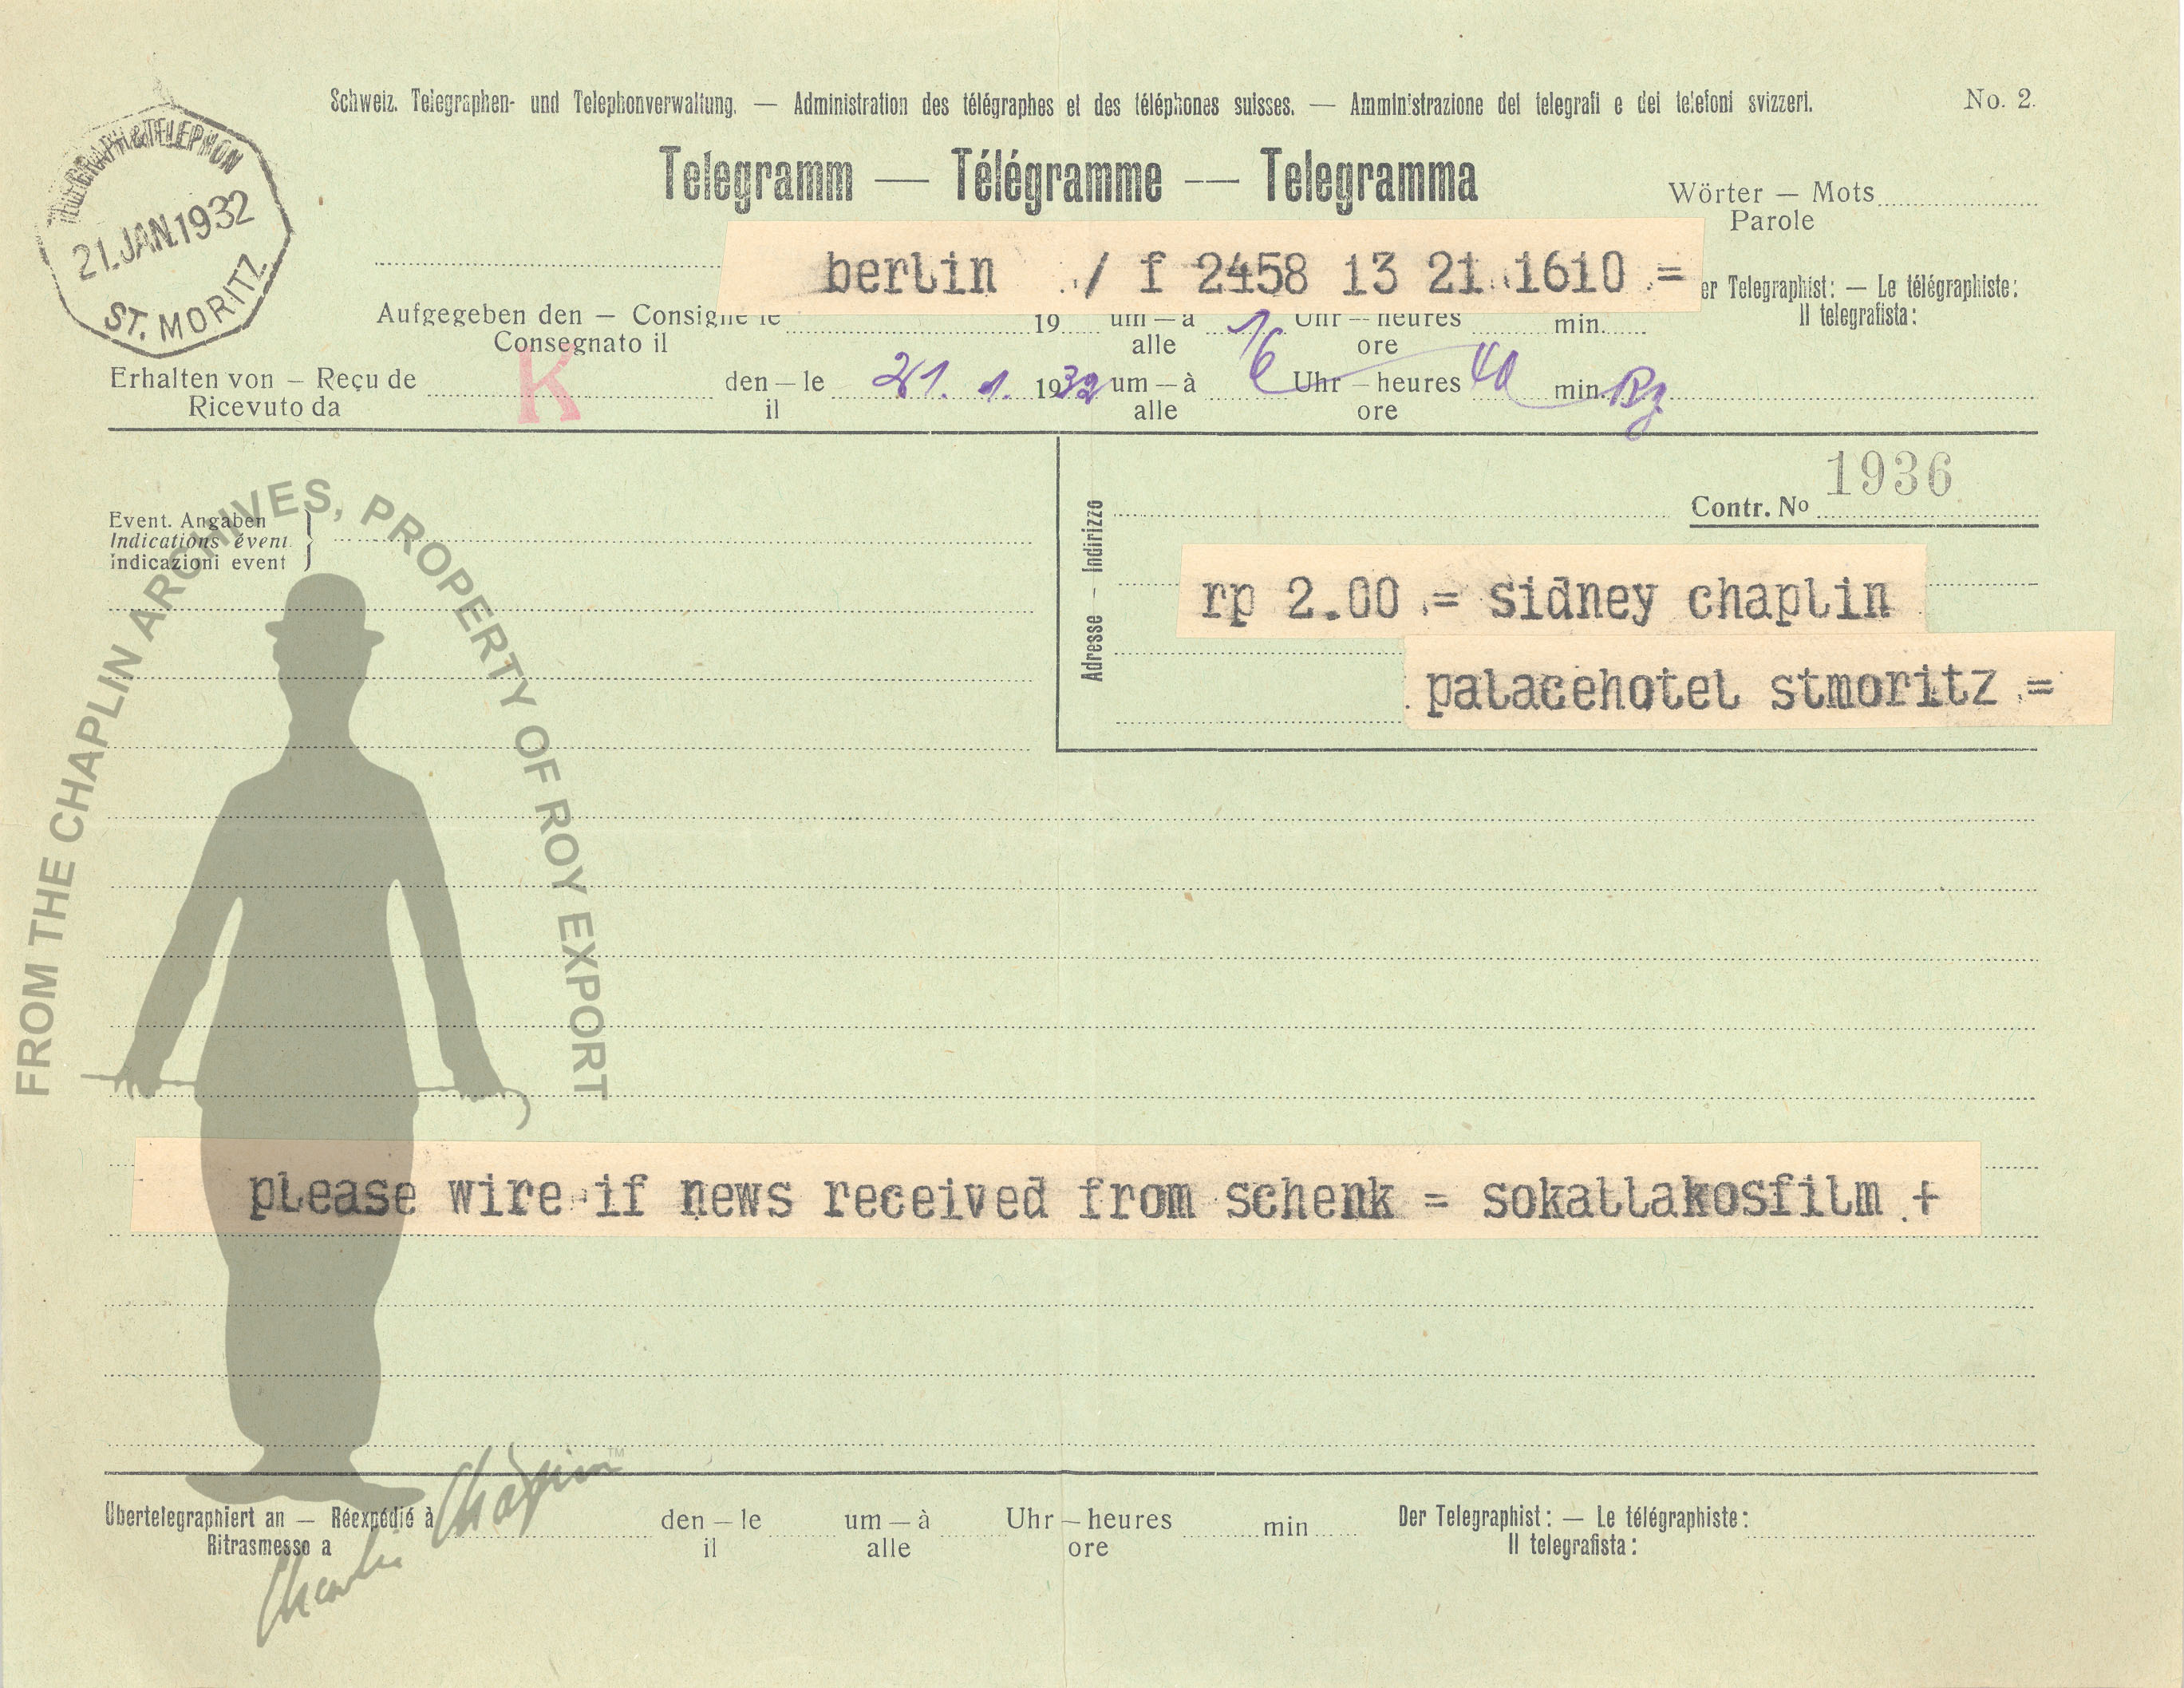 Schweiz. Telegraphen- und Telephonverwaltung. — Administration des télégraphes et des téléphones suisses. — Amministrazione dei telegrafi e dei telefoni svizzeri.
No. 2.
TELEGRAPH & TELEPHON
21.JAN.1932
ST. MORITZ
Telegramm — Télégramme — Telegramma
Wörter — Mots
Parole
berlin / f 2458 13 21 1610 =
er Telegraphist: — Le télégraphiste:
Il telegrafista:
Aufgegeben den — Consigné le 19 um — à Uhr — heures min.
Consegnato il alle ore
16
Erhalten von — Reçu de K den — le 21. 1. 1932 um — à Uhr — heures 40 min.
Ricevuto da il alle ore
Contr. No 1936
Event. Angaben
Indications évent.
Indicazioni event
Adresse — Indirizzo
rp 2.00 = sidney chaplin
palacehotel stmoritz =
FROM THE CHAPLIN ARCHIVES, PROPERTY OF ROY EXPORT
please wire if news received from schenk = sokallakosfilm +
Übertelegraphiert an — Réexpédié à den — le um — à Uhr — heures min
Ritrasmesso a il alle ore
Der Telegraphist: — Le télégraphiste:
Il telegrafista:
Charlie Chaplin ™